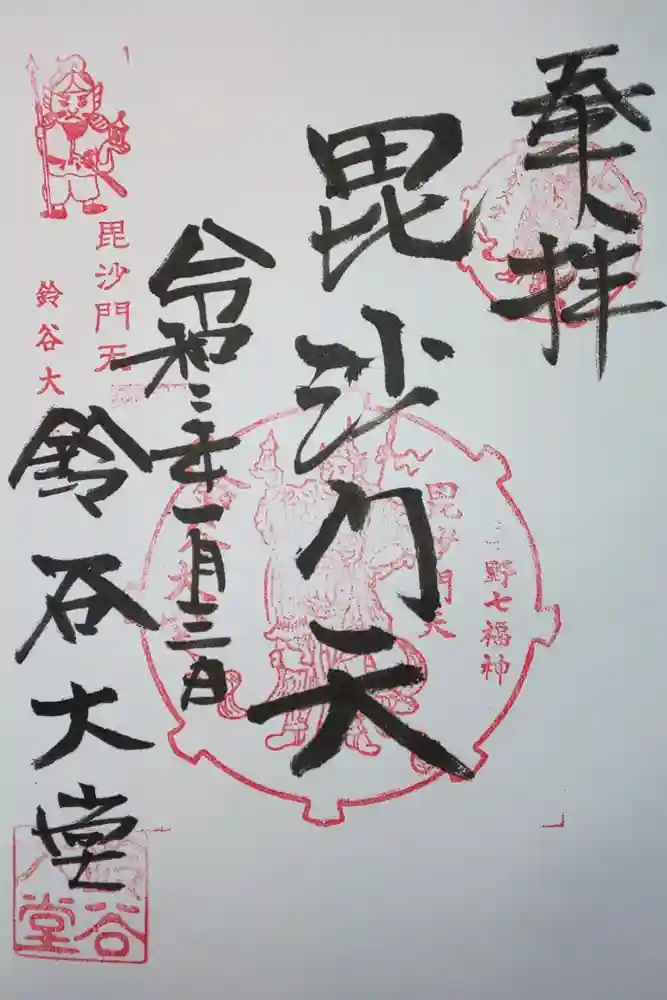 奉拝
毘沙门天
令和三年一月三日
鈴谷大堂
野七福神
毘沙門天
毘沙門天
鈴谷大
谷
堂